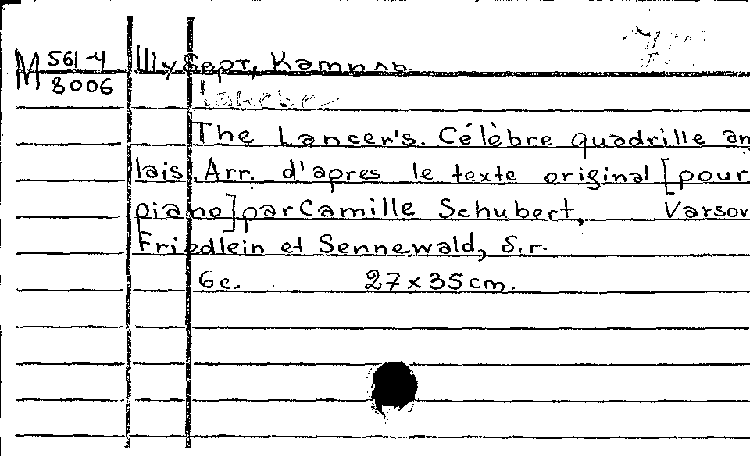 М 561-4 Шуберт, Камилл.
8006
The Lancer's. Célèbre quadrille an
lais. Arr. d'apres le texte original [pour
piano] par Camille Schubert, Varsov
Friedlein et Sennewald, S.r.
6c. 27x35cm.